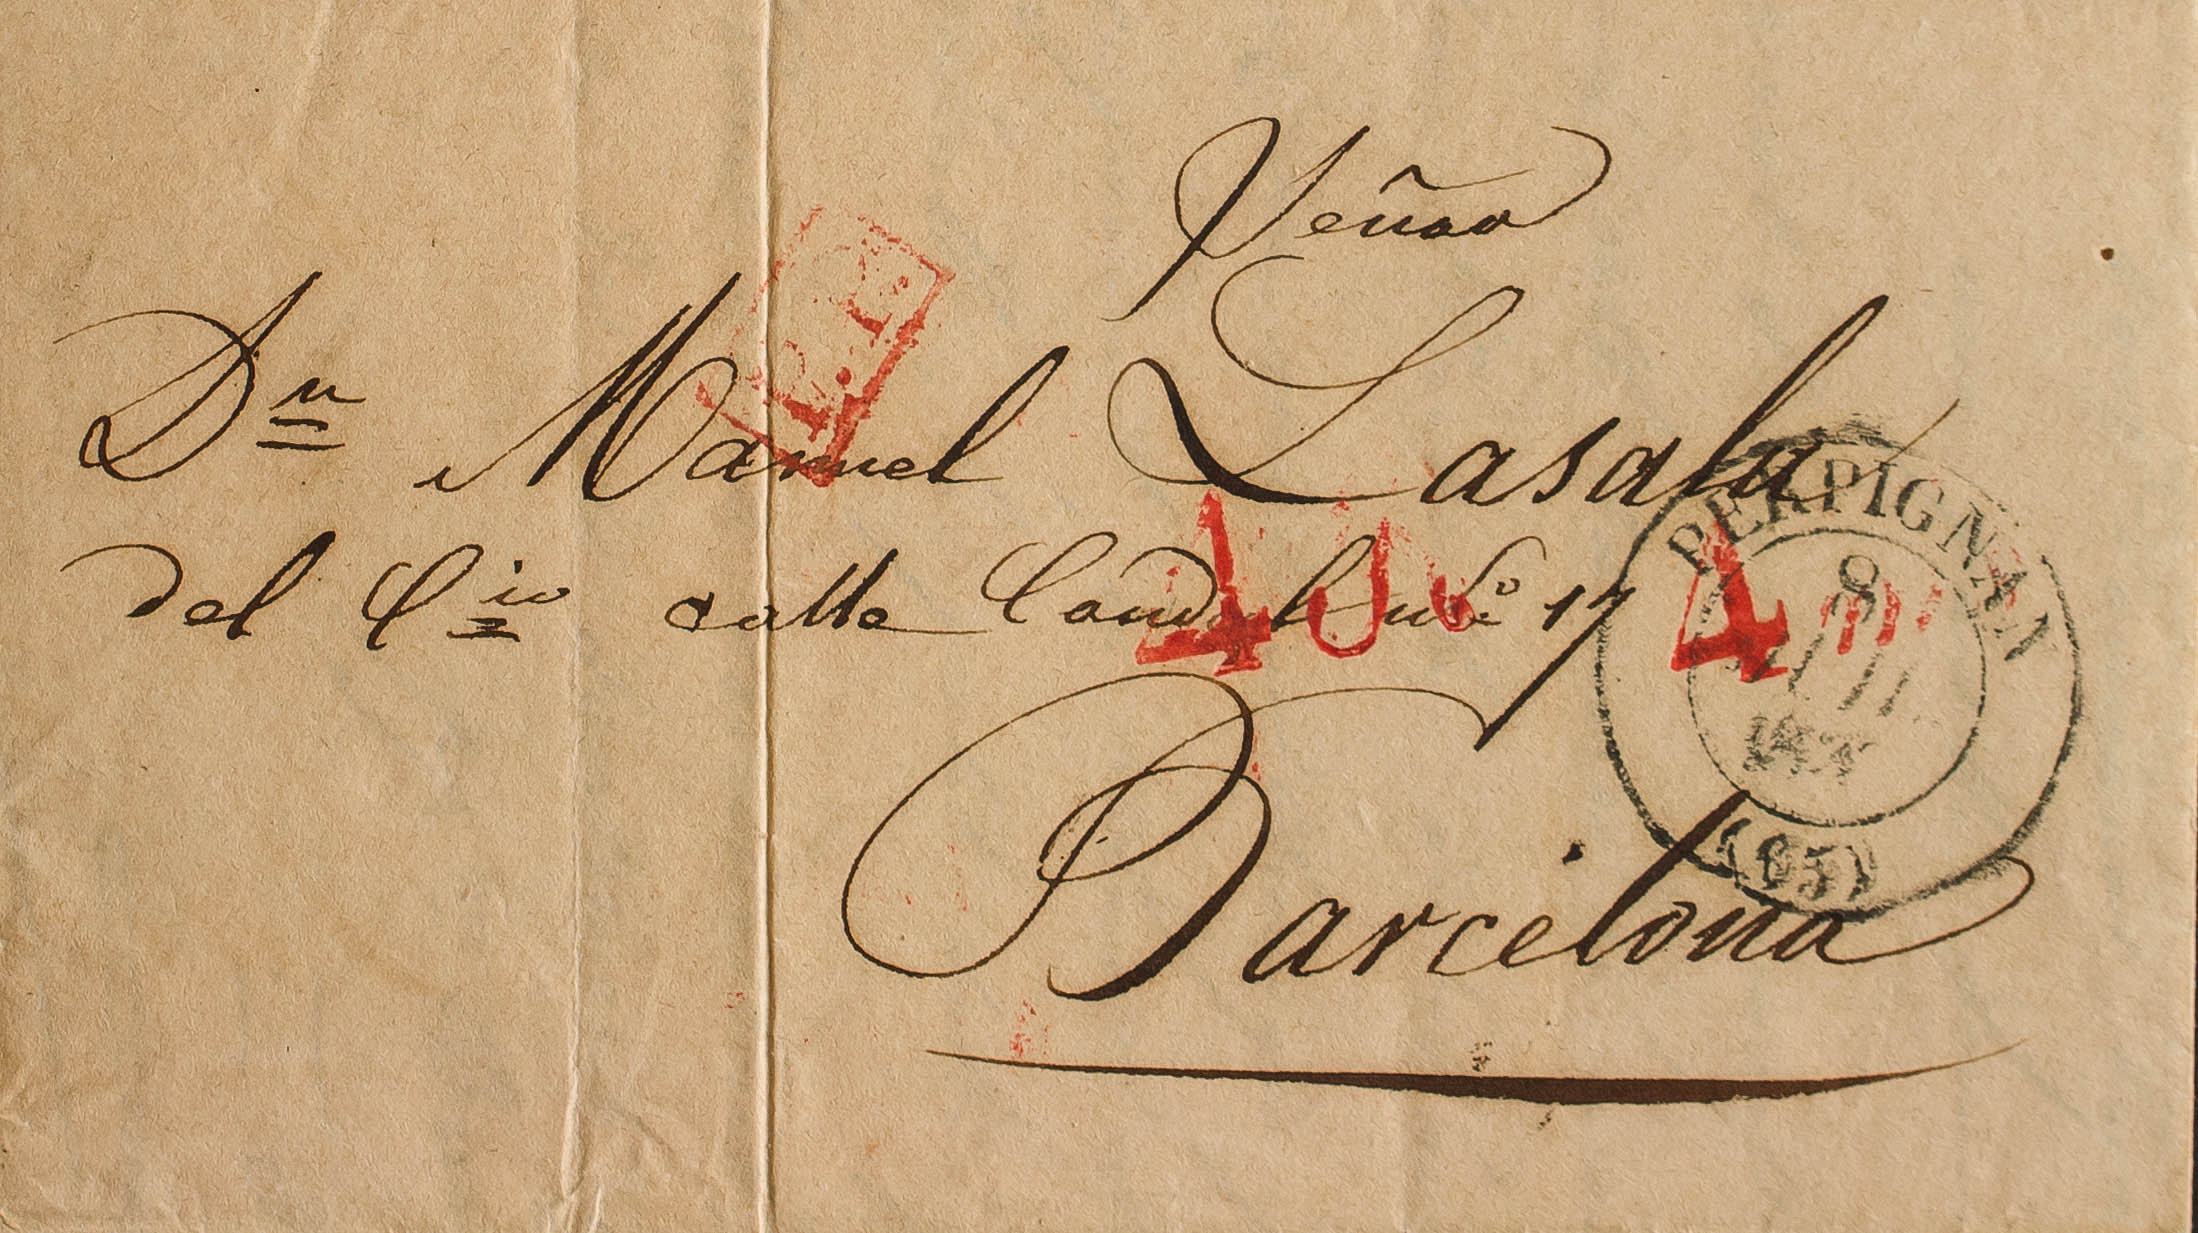 Señor
Dn Manuel Lasala
del Cio calle Condal no 17
Barcelona
PERPIGNAN
8
(65)
4
4